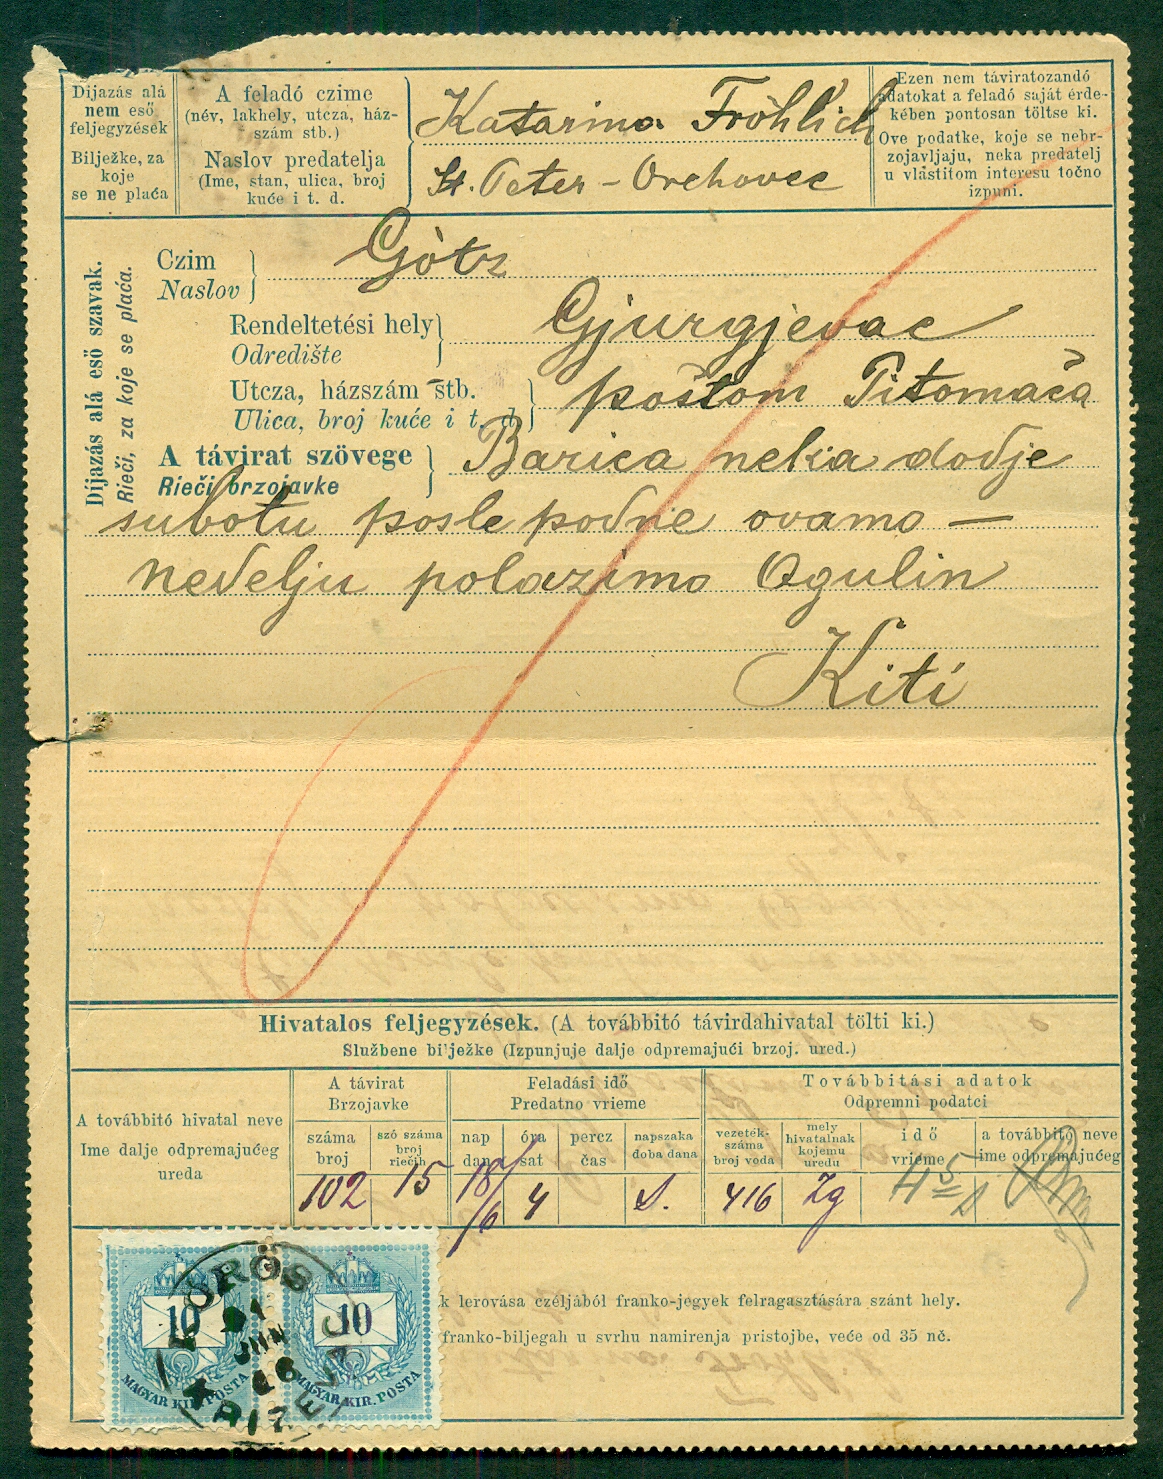 Díjazás alá
nem eső
feljegyzések
Bilježke, za
koje
se ne plaća
A feladó czime
(név, lakhely, utcza, ház-
szám stb.)
Naslov predatelja
(Ime, stan, ulica, broj
kuće i t. d.
Katarina Fröhlich
St. Peter - Orehovec
Ezen nem táviratozandó
adatokat a feladó saját érde-
kében pontosan töltse ki.
Ove podatke, koje se nebr-
zojavljaju, neka predatelj
u vlastitom interesu točno
izpuni.
Díjazás alá eső szavak.
Rieči, za koje se plaća.
Czim
Naslov
Götz
Rendeltetési hely
Odredište
Gjurgjevac
Utcza, házszám stb.
Ulica, broj kuće i t. d.
poštom Pitomača
A távirat szövege
Rieči brzojavke
Barica neka dodje
subotu posle podne ovamo —
nedelju polazimo Ogulin
Kiti
Hivatalos feljegyzések. (A továbbitó távirdahivatal tölti ki.)
Službene bilježke (Izpunjuje dalje odpremajući brzoj. ured.)
A továbbitó hivatal neve
Ime dalje odpremajućeg
ureda
A távirat
Brzojavke
száma
broj
szó száma
broj
riečih
Feladási idő
Predatno vrieme
nap
dan
óra
sat
percz
čas
napszaka
doba dana
Továbbitási adatok
Odpremni podatci
vezeték-
száma
broj voda
mely
hivatalnak
kojemu
uredu
idő
vrieme
a továbbitó neve
ime odpremajućeg
102 15 18/6 4 d. 416 Zg 4 5
k lerovása czéljából franko-jegyek felragasztására szánt hely.
franko-biljegah u svrhu namirenja pristojbe, veće od 35 nč.
10 10
MAGYAR KIR. POSTA MAGYAR KIR. POSTA
91
JUN